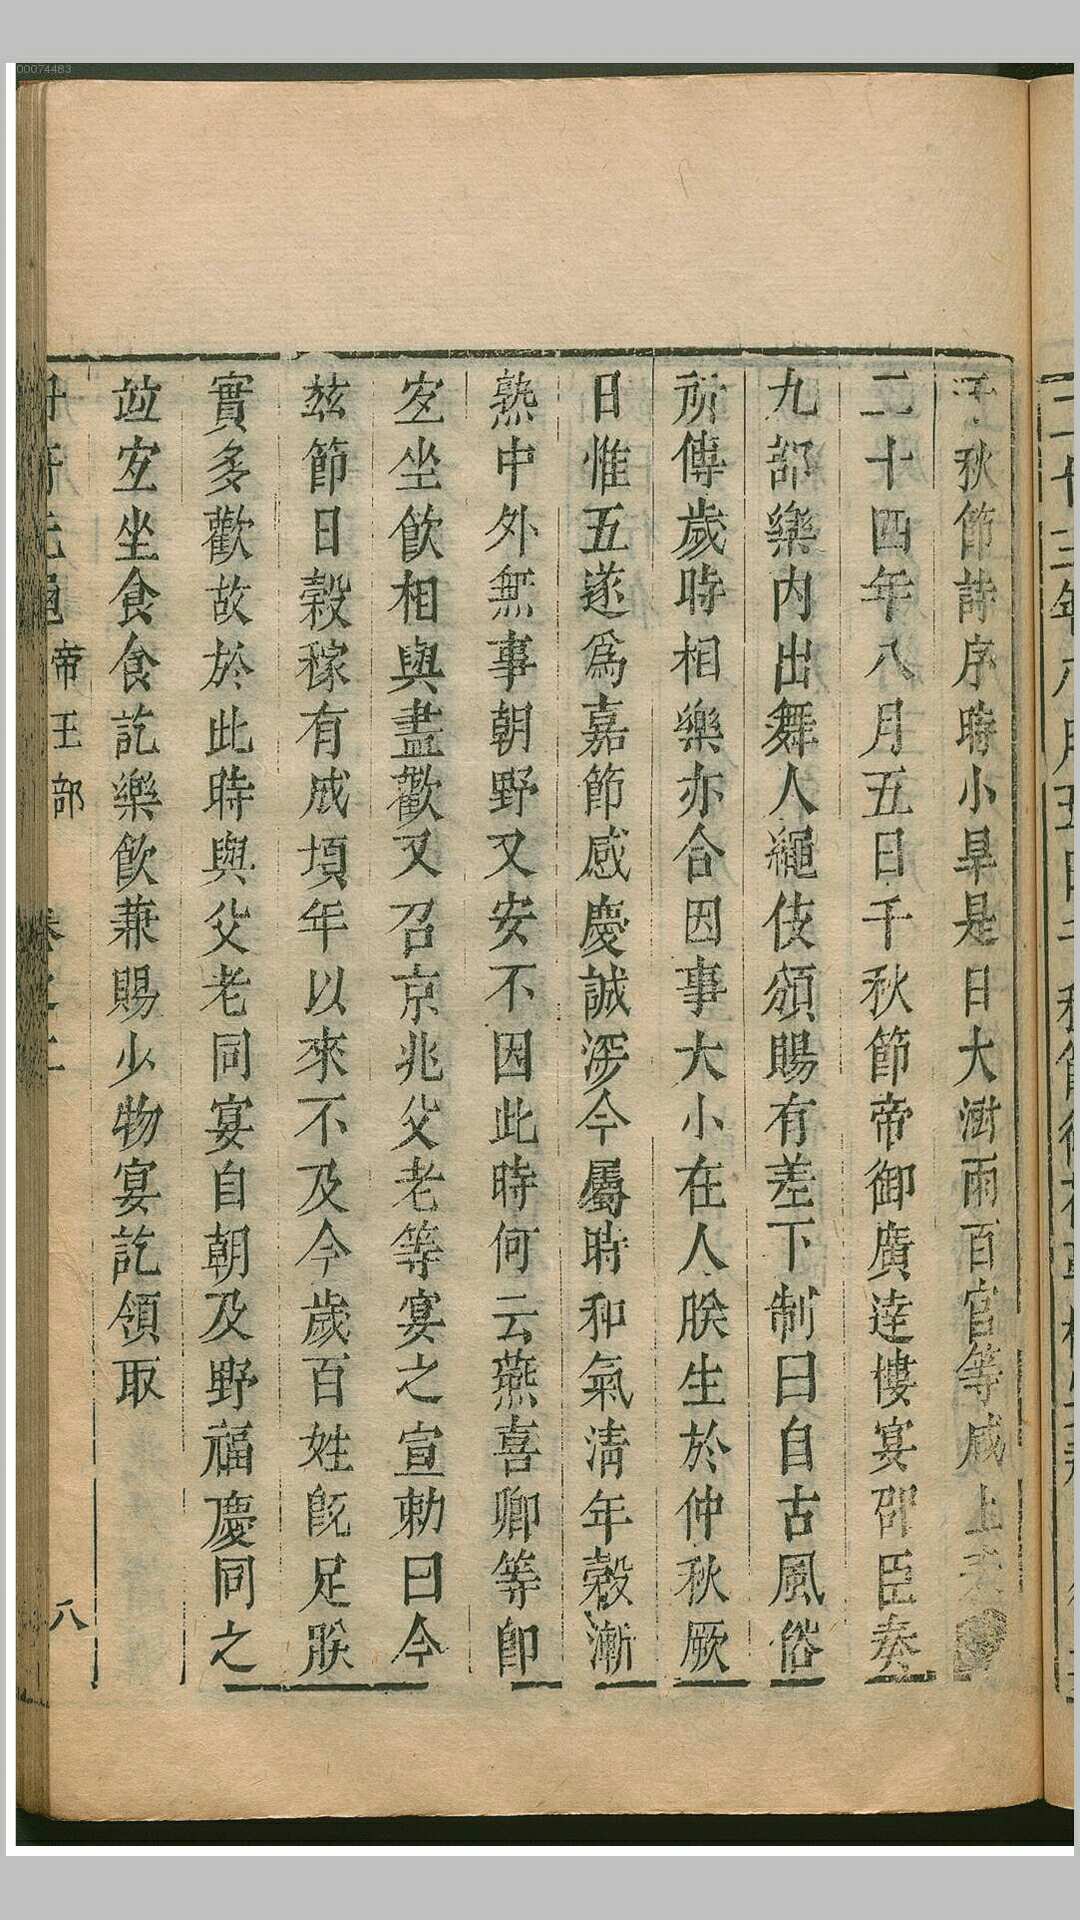 千秋節詩序時小旱是日大澍雨百官等咸上表
二十四年八月五日千秋節帝御廣達樓宴邵臣奏
九部樂内出舞人繩伎頒賜有差下制曰自古風俗
所傳歲時相樂亦合因事大小在人朕生於仲秋厥
日惟五遂爲嘉節感慶誠深今屬時和氣清年穀漸
熟中外無事朝野又安不因此時何云燕喜卿等即
宜坐飲相與盡歡又召京兆父老等宴之宣勅曰今
兹節日穀稼有成頃年以來不及今歲百姓既足朕
實多歡故於此時與父老同宴自朝及野福慶同之
並宜坐食食訖樂飲兼賜少物宴訖領取
册府元龜 帝王部 卷之二 八
00074483